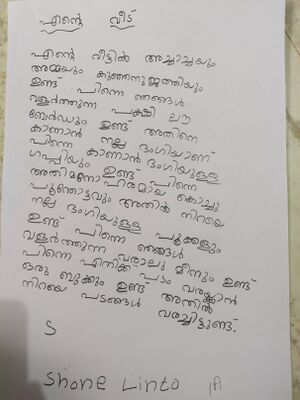 എന്റെ വീട്
എന്റെ വീട്ടിൽ അച്ചാച്ചയും
അമ്മയും കുഞ്ഞനുജത്തിയും
ഉണ്ട് പിന്നെ ഞങ്ങൾ
വളർത്തുന്ന പക്ഷി ലൗ
ബേർഡും ഉണ്ട് അതിനെ
കാണാൻ നല്ല ഭംഗിയാണ്
പിന്നെ കാണാൻ ഭംഗിയുള്ള
ഗപ്പിയും ഉണ്ട് പിന്നെ
അതിമനോഹരമായ കൊച്ചു
പൂന്തോട്ടവും അതിൽ നിറയെ
നല്ല ഭംഗിയുള്ള പൂക്കളും
ഉണ്ട് പിന്നെ ഞങ്ങൾ
വളർത്തുന്ന വരാലു മീനും ഉണ്ട്
പിന്നെ എനിക്ക് പടം വരക്കാൻ
ഒരു ബുക്കും ഉണ്ട് അതിൽ
നിറയെ പടങ്ങൾ വരച്ചിട്ടുണ്ട്.
S
Shone Linto